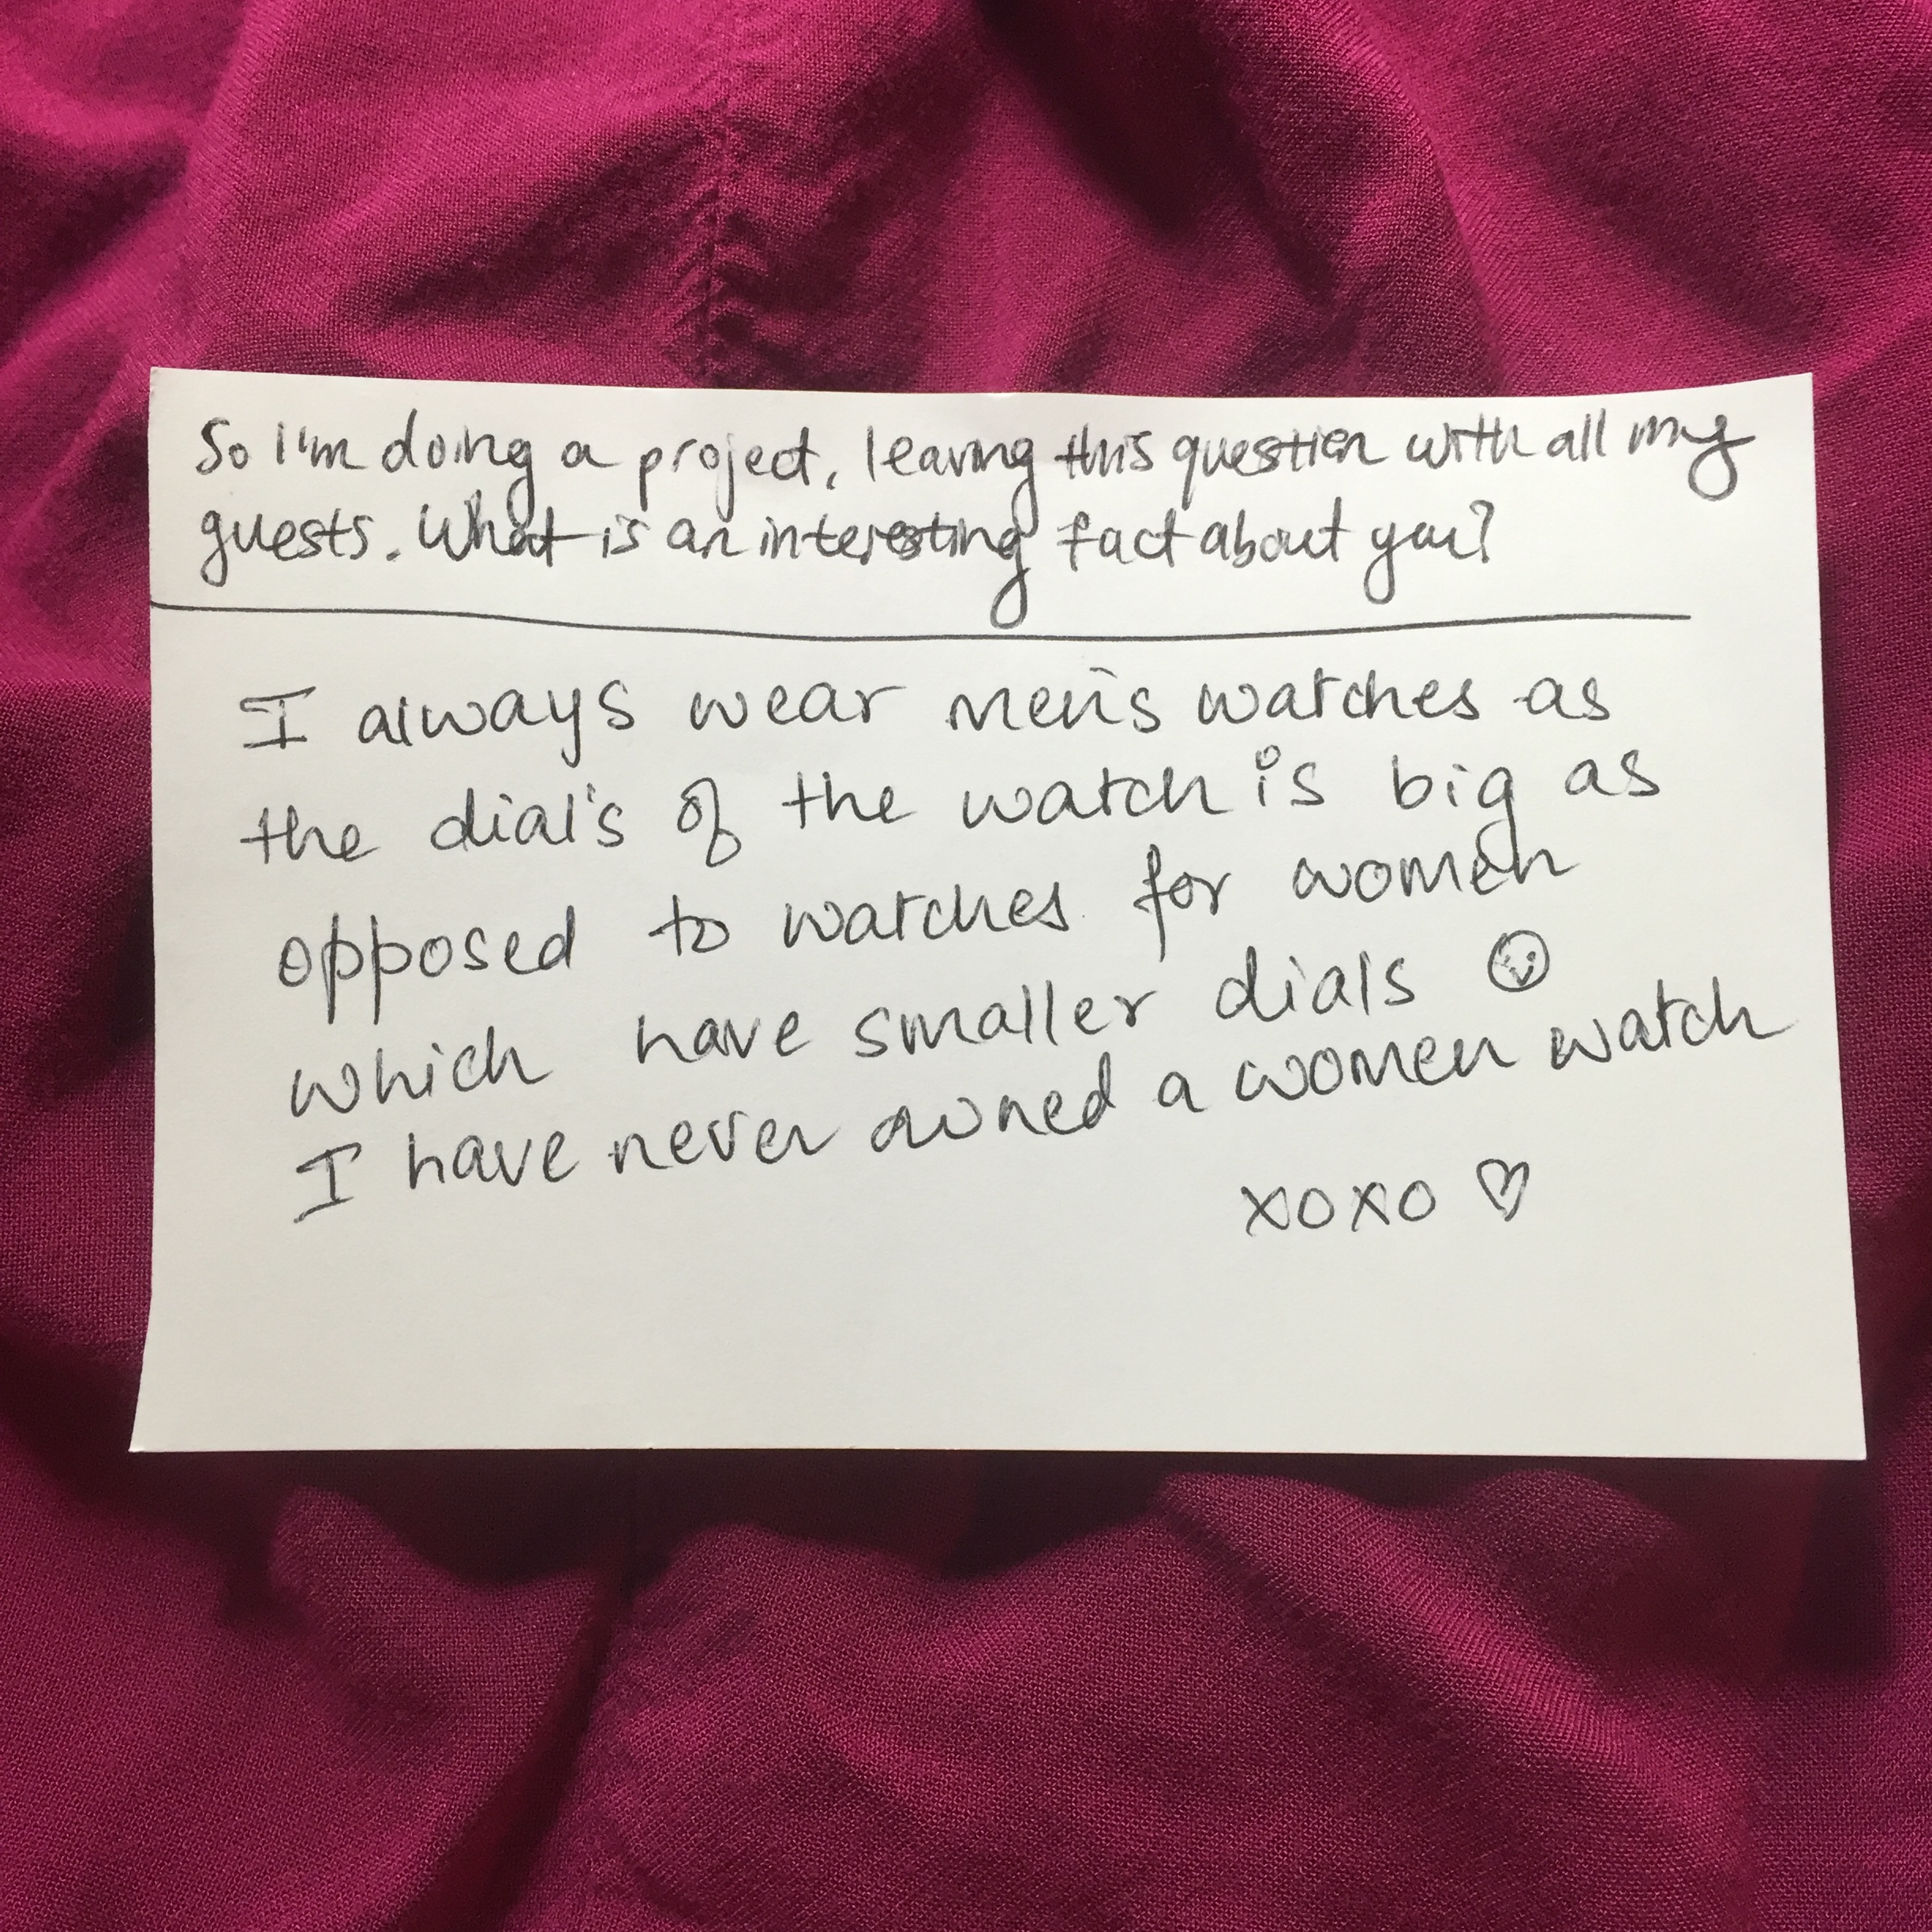 So I'm doing a project, leaving this question with all my
guests. What is an interesting fact about you?
I always wear men's watches as
the dial's of the watch is big as
opposed to watches for women
which have smaller dials ☺
I have never owned a women watch
xoxo ♡